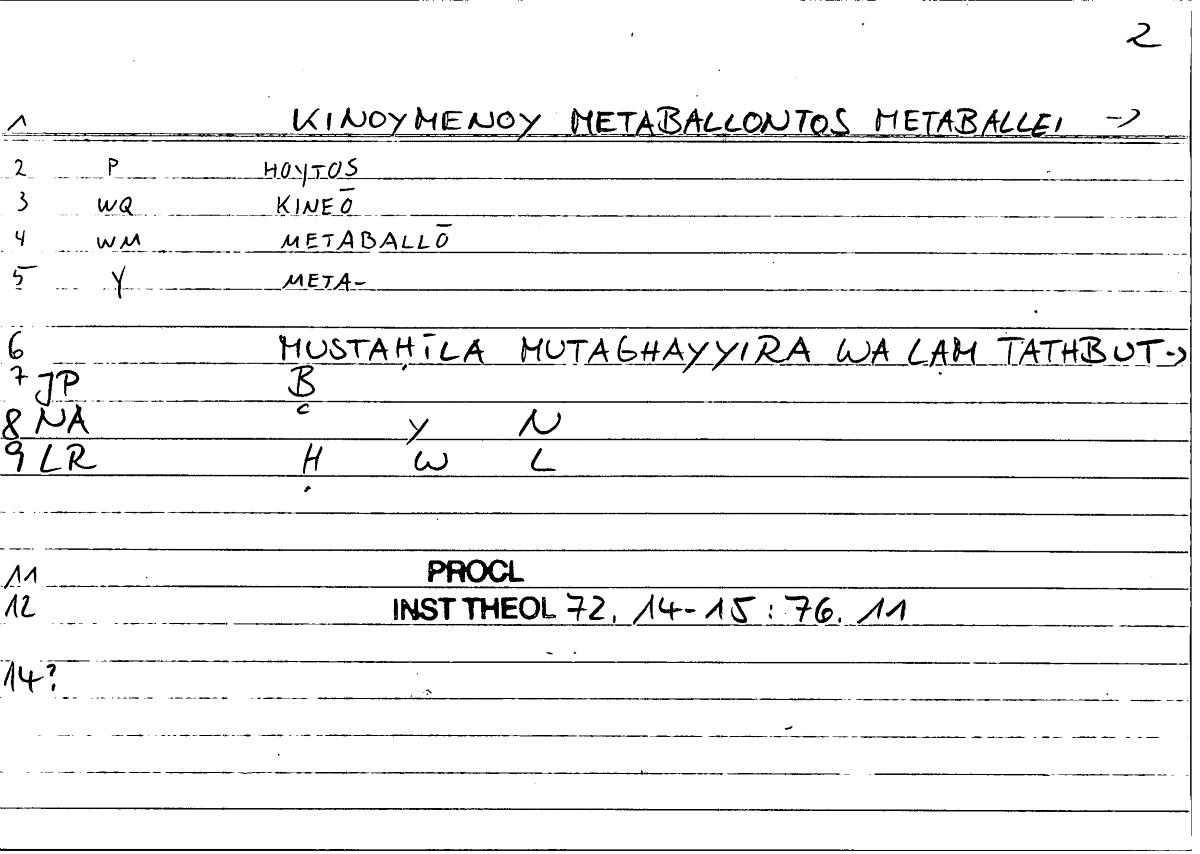 2
1 KINOYMENOY METABALLONTOS METABALLEI ->
2 P HOYTOS
3 WQ KINEŌ
4 WM METABALLŌ
5 Y META-
6 MUSTAḤĪLA MUTAGHAYYIRA WA LAM TATHBUT->
7 JP B
8 NA c Y N
9 LR Ḥ W L
11 PROCL
12 INST THEOL 72, 14-15 : 76. 11
14?